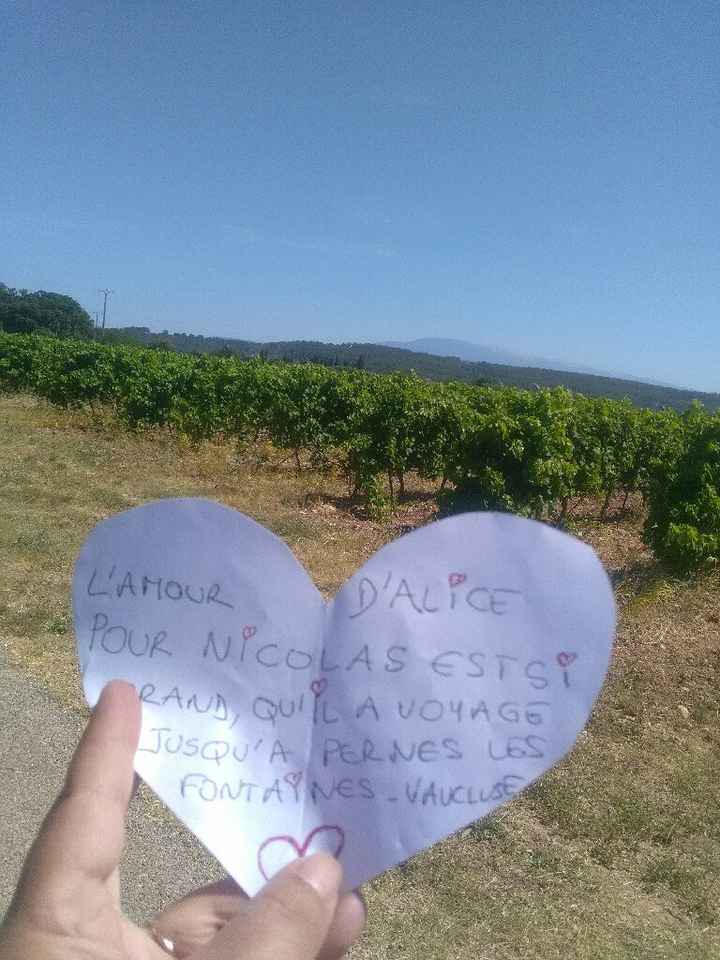 L'AMOUR D'ALICE
POUR NICOLAS EST SI
RAND, QU'IL A VOYAGE
JUSQU'A PERNES LES
FONTAINES - VAUCLUSE